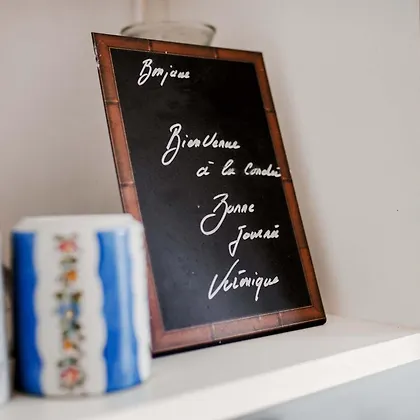 Bonjour
BienVenue
à la Condée
Bonne
Journée
Véronique